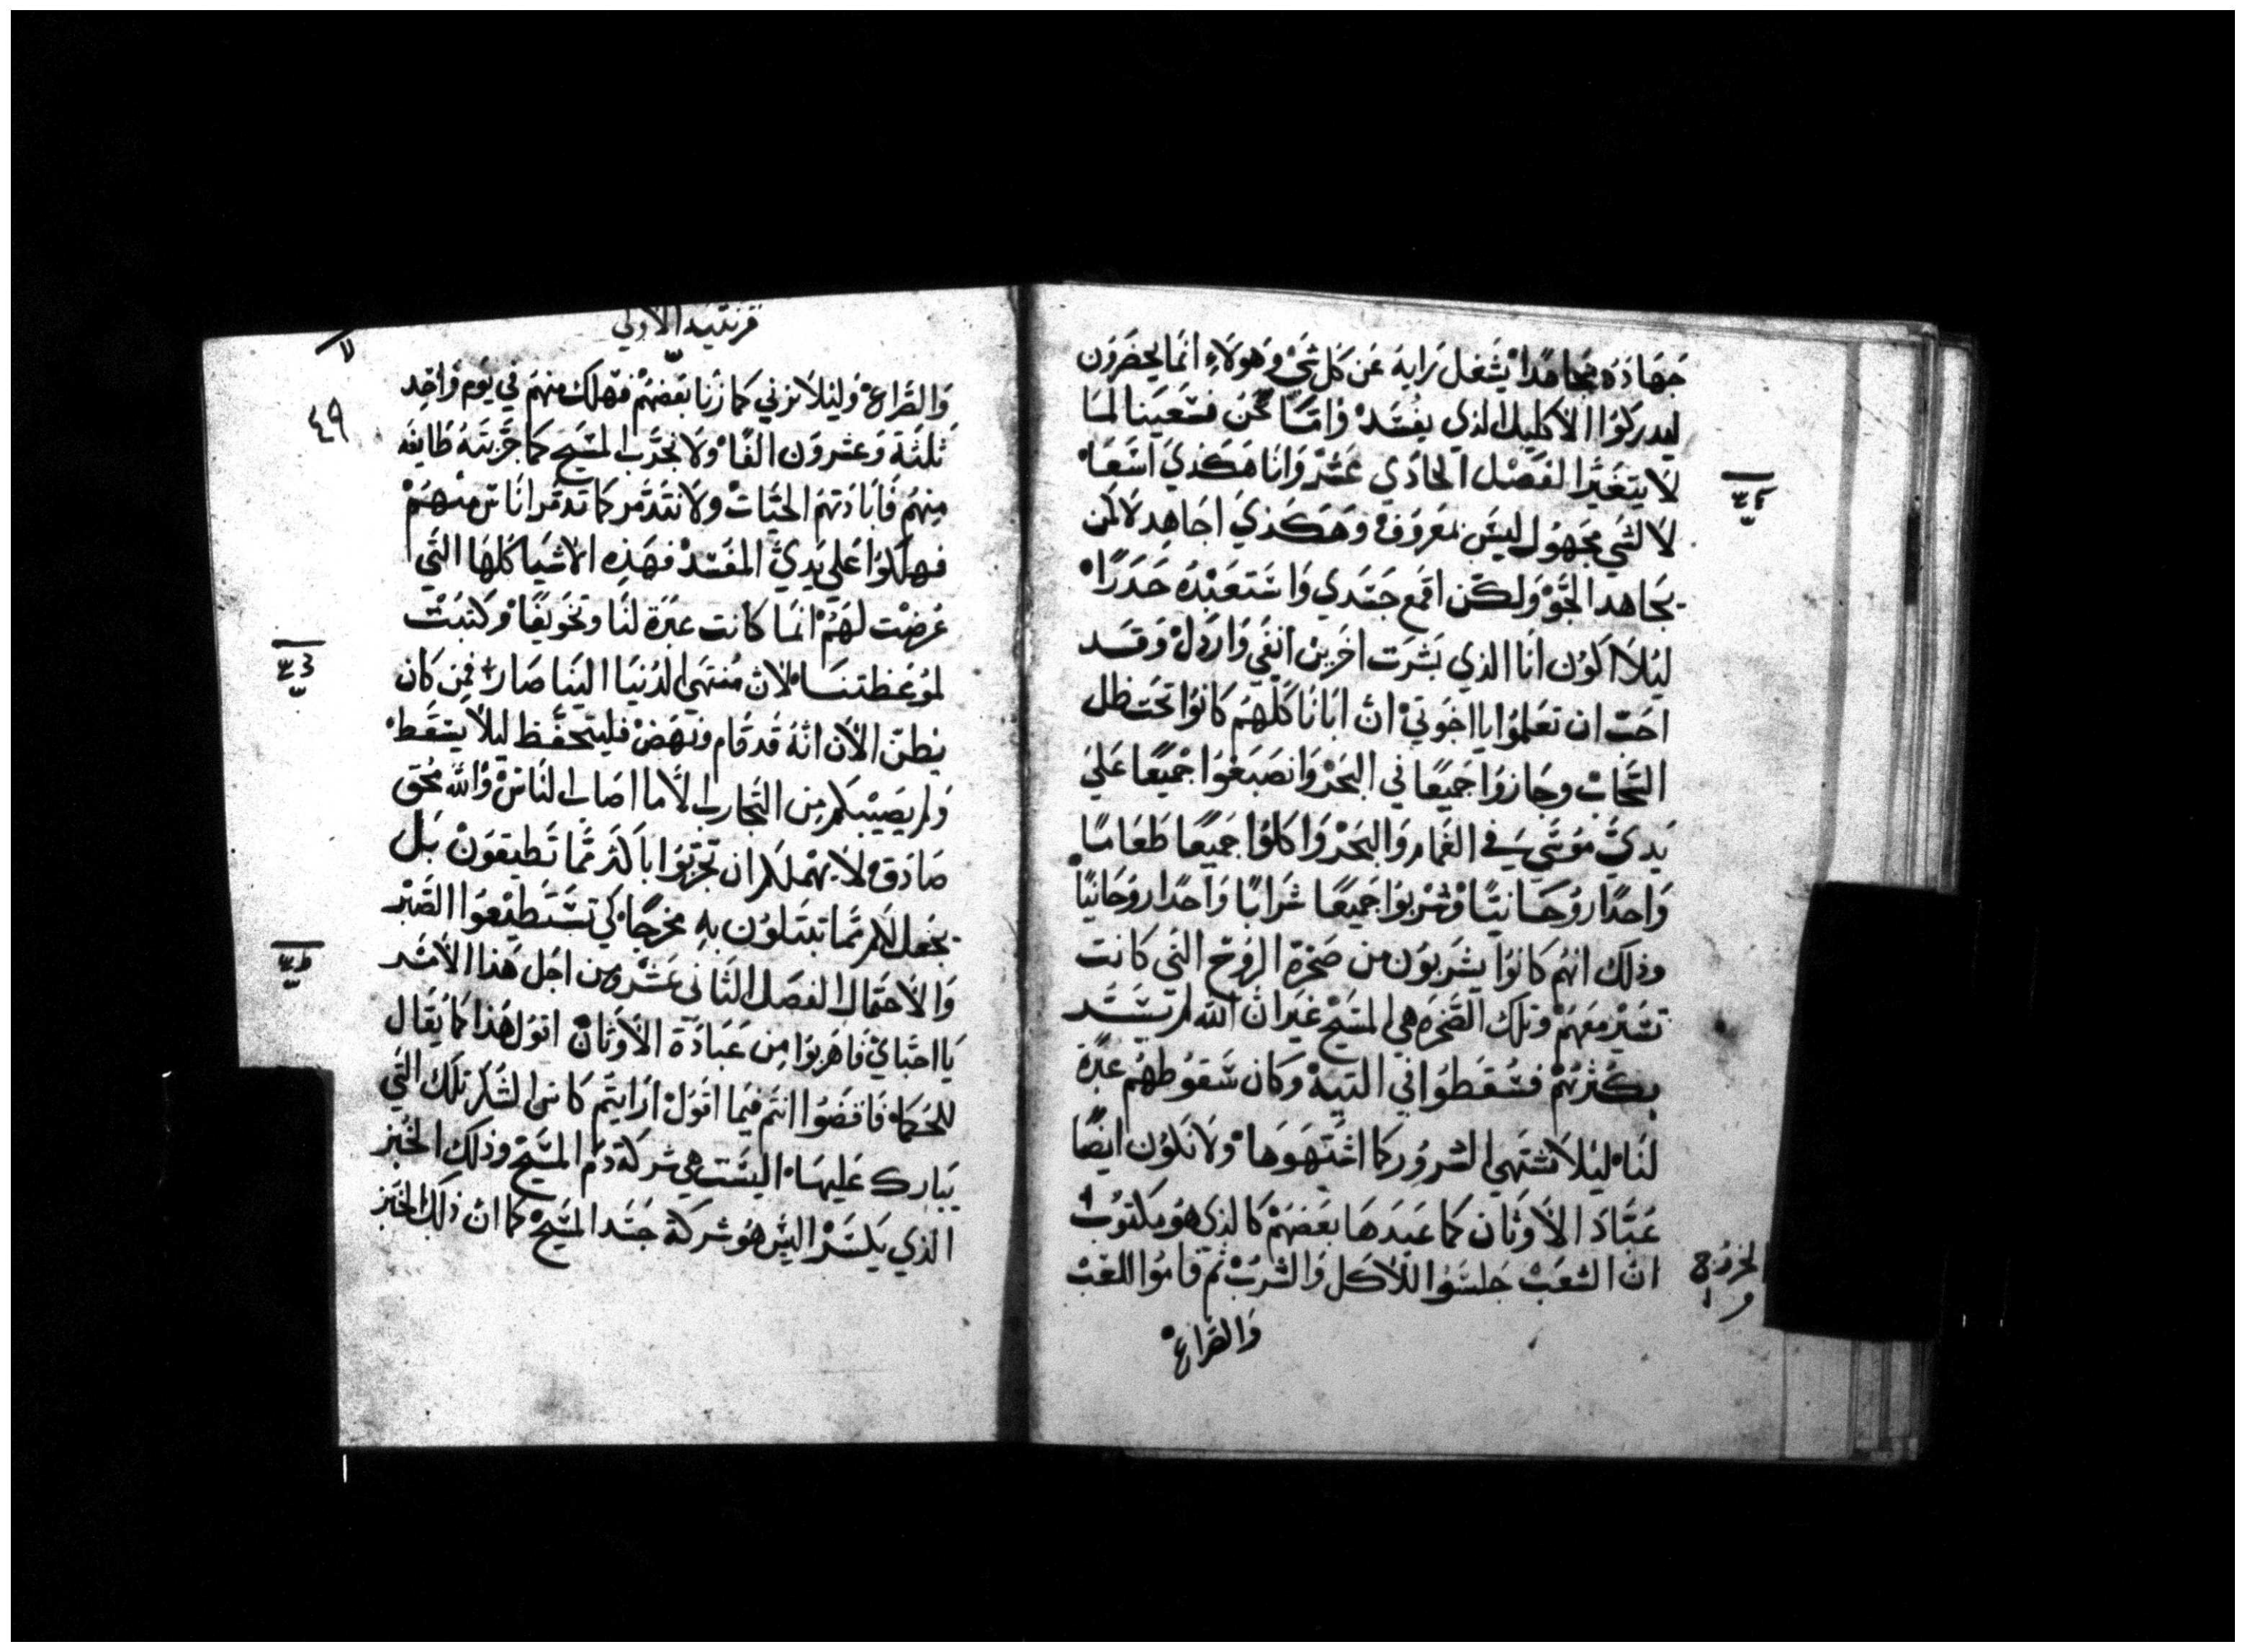 جهاده مجاهدا يشغل رايه عن كل شي وهولاء انما يحضرون
ليدركوا الاكليل الذي يفسد واما نحن فسعينا لما
لا يتغير الفصل الحادي عشر وانا هكذي اسعا
لا لشي مجهول ليس بمعروف وهكذي اجاهد لا كمن
يجاهد الجو ولكن اقمع جسدي واستعبده حدرا
ليلا اكون انا الذي بشرت اخرين انفي واردل وقد
احب ان تعلموا يا اخوتي ان ابانا كلهم كانوا تحت ظل
السحاب وجازوا جميعا في البحر وانصبغوا جميعا علي
يدي موسي في الغمام والبحر واكلوا جميعا طعاما
واحدا روحانيا وشربوا جميعا شرابا واحدا روحانيا
وذلك انهم كانوا يشربون من صخرة الروح التي كانت
تسير معهم وتلك الصخره هي المسيح غير ان الله لم يسد
بكثرتهم فسقطوا في التيه وكان سقوطهم عبرة
لنا ليلا نشتهي الشرور كما اشتهوها ولا نكون ايضا
عباد الاوثان كما عبدها بعضهم كالذي هو مكتوب
ان الشعب جلسوا للاكل والشرب ثم قاموا اللعب
الخروج
والصراع
قرنتيه الاولي
٤٩
والصراع وليلا نزني كما زنا بعضهم فهلك منهم في يوم واحد
ثلثة وعشرون الفا ولا نجرب المسيح كما جربته طايفه
منهم فابادتهم الحيات ولا نتدمر كما تدمر اناس منهم
فهلكوا علي يدي المفسد فهذه الاشيا كلها التي
عرضت لهم انما كانت عبرة لنا وتخويفا وكتبت
لموعظتنا لان منتهي الدنيا الينا صار فمن كان
يظن الان انه قد قام ونهض فليتحفظ ليلا يسقط
ولم يصيبكم من التجارب الا ما اصاب الناس والله محق
صادق لا يهملكم ان تجربوا باكثر مما تطيقون بل
يجعل لكم مما تبتلون به مخرجا كي تستطيعوا الصبر
والاحتمال الفصل الثاني عشر ومن اجل هذا الامر
يا احباي فاهربوا من عبادة الاوثان اقول هذا كما يقال
للحكما فاقضوا انتم فيما اقول ارايتم كاس الشكر تلك التي
يبارك عليها اليست هي شركة دم المسيح وذلك الخبز
الذي يكسر اليس هو شركة جسد المسيح كما ان ذلك الخبز